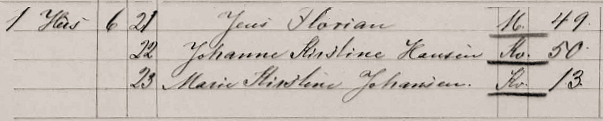 1 Hus 6 21 Jens Florian M. 49.
22 Johanne Kirstine Hansen Kv. 50.
23 Marie Kirstine Johansen. Kv. 13.